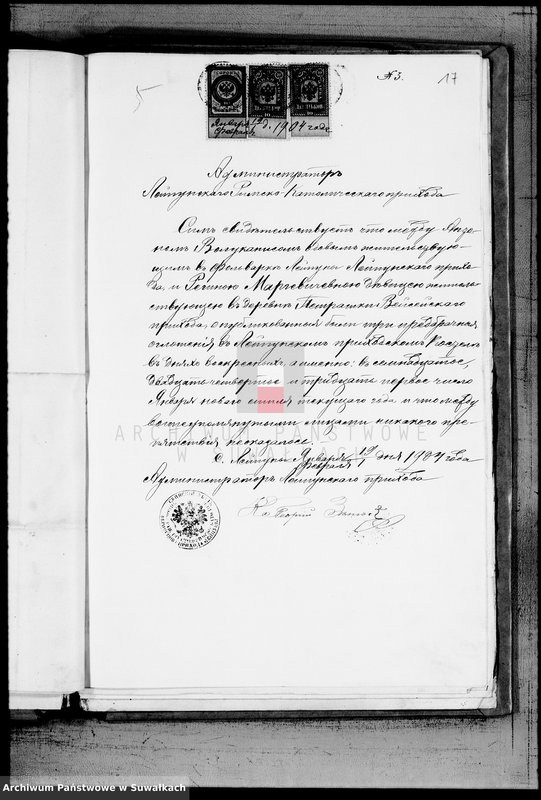 № 3.
17
5
Января 19
Февраля 1 д. 1904 года
Администраторъ
Лейпунскаго Римско-Католическаго прихода
Симъ свидѣтельствуетъ что между Анто-
номъ Валуканисомъ вдовымъ жительствую-
щимъ въ фольварке Лейпуны Лейпунскаго прихо-
да, и Региною Мацкевичевною дѣвицею житель-
ствующею въ деревнѣ Петрашки Вейсейскаго
прихода, опубликованныя были три предбрачныя
оглашенія въ Лейпунскомъ приходскомъ Костелѣ
въ дняхъ воскресныхъ, а именно: въ семнадцатое,
двадцать четвертое и тридцать первое число
Января новаго стиля текущаго года и что между
вышеупомянутыми лицами никакого пре-
пятствія не оказалось.
д. Лейпуны Января 19
Февраля 1 дня 1904 года
Администраторъ Лейпунскаго прихода
Кс. Георгій
ARCHIWUM PAŃSTWOWE
W SUWAŁKACH
Archiwum Państwowe w Suwałkach